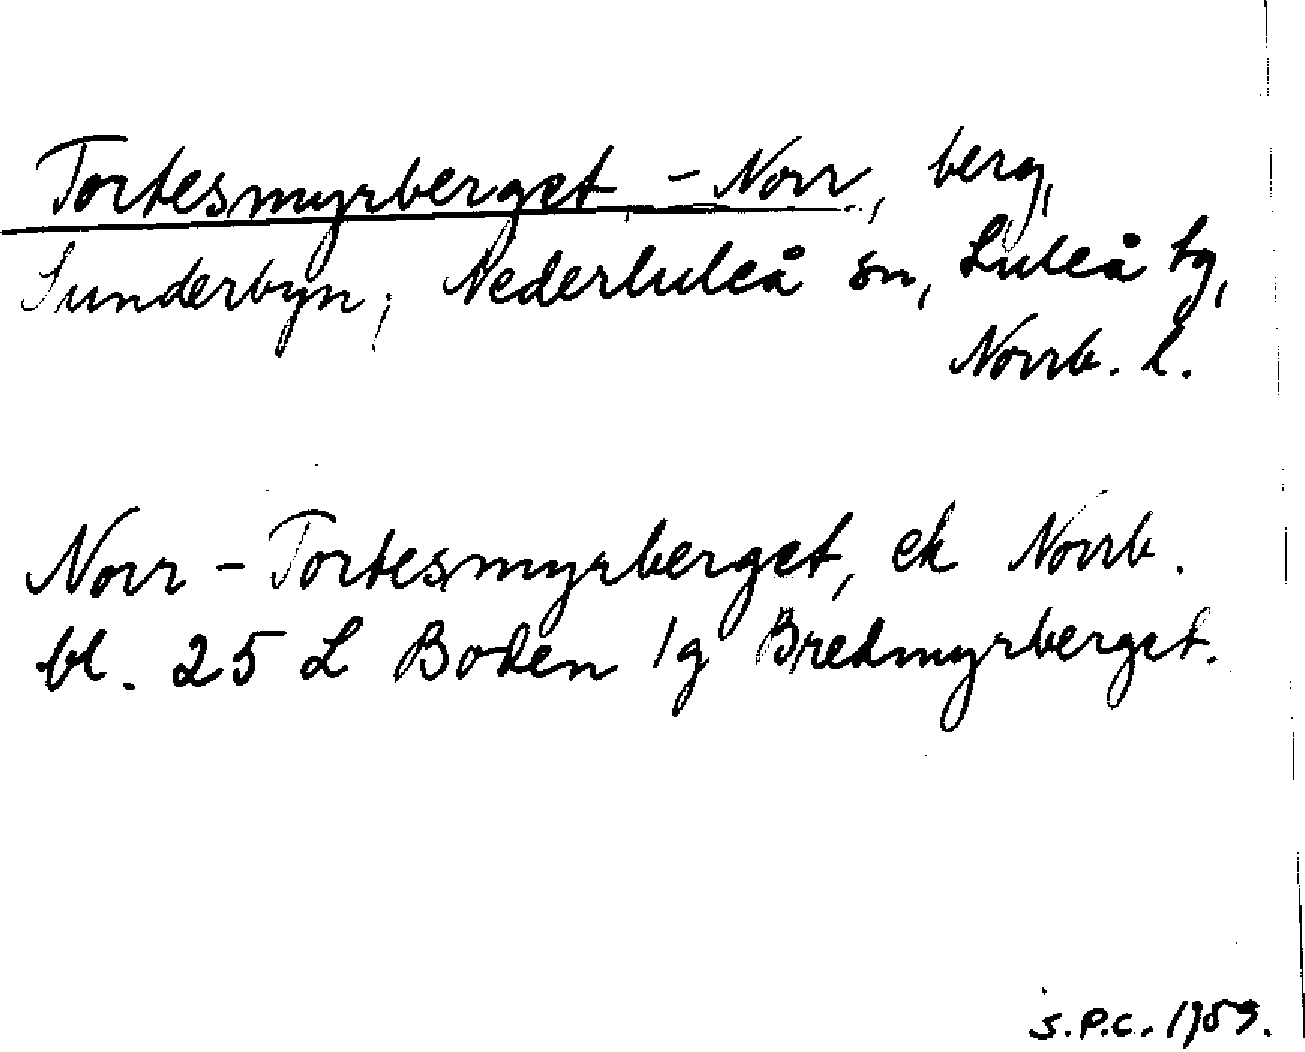 Tortesmyrberget - Norr, berg,
Sunderbyn, Nederluleå sn, Luleå tg,
Norrb. l.
Norr - Tortesmyrberget, ek Norrb.
bl. 25 L Boden 1g Bredmyrberget.
S.P.C. 1959.